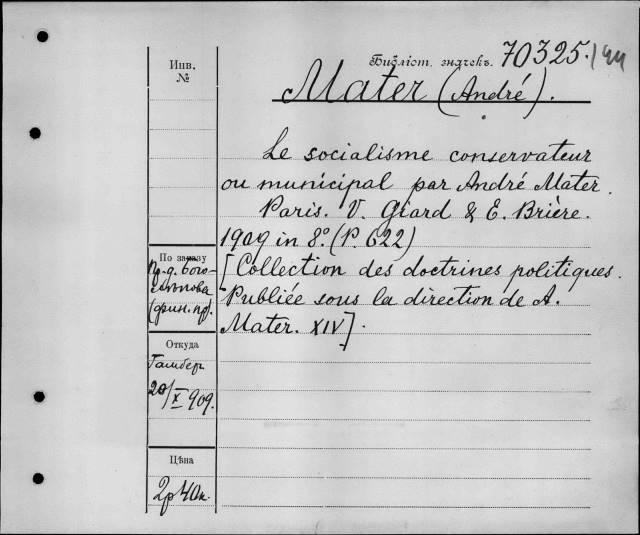 Инв.
№
Библіот. значекъ. 70325./
Mater (André).
Le socialisme conservateur
ou municipal par André Mater.
Paris. V. Giard & E. Brière.
1909 in 8º. (P. 622)
[Collection des doctrines politiques.
Publiée sous la direction de A.
Mater. XIV].
По заказу
Пр. д. Бого-
лѣпова
(фин. пр).
Откуда
Гамбер
20/X 909.
Цѣна
2р 40к.